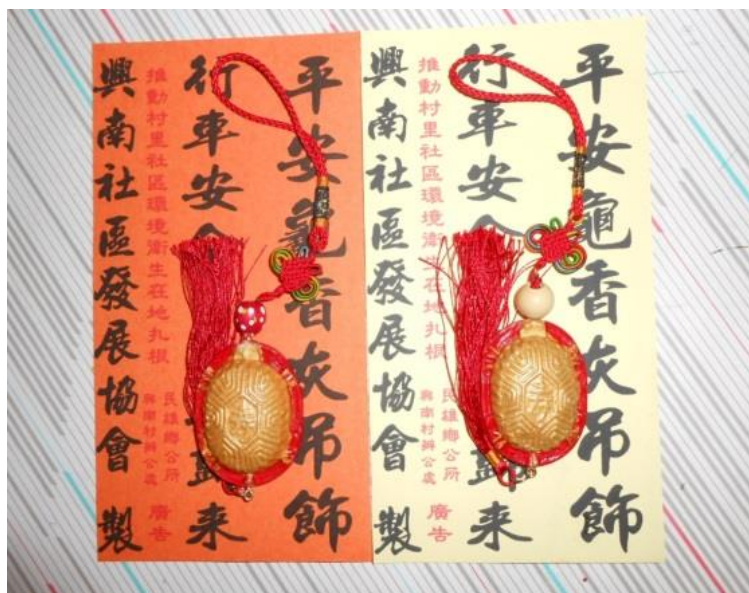 平安龜香灰吊飾
行車安全 来
推動村里社區環境衛生在地扎根
民雄鄉公所
興南村辦公處
廣告
興南社區發展協會 製
平安龜香灰吊飾
行車安全 来
推動村里社區環境衛生在地扎根
民雄鄉公所
興南村辦公處
廣告
興南社區發展協會 製